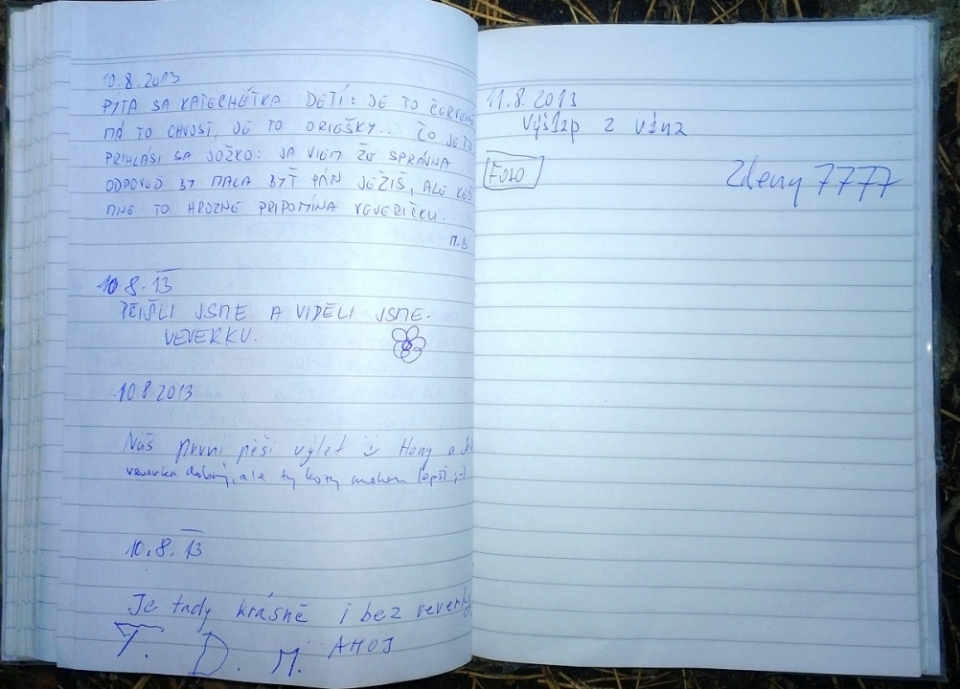 10.8.2013
PÝTA SA KATECHÉTKA DETÍ: JE TO ČERVENÉ
MÁ TO CHVOST, JE TO ORIEŠKY.. ČO JE TO
PRIHLÁSI SA JOŽKO: JA VIEM ŽE SPRÁVNA
ODPOVEĎ BY MALA BYŤ PÁN JEŽIŠ, ALE KEĎ
MNE TO HROZNE PRIPOMÍNA VEVERIČKU.
M.B
10.8.13
PŘIŠLI JSME A VIDĚLI JSME.
VEVERKU.
10.8.2013
Náš první pěší výlet Hany a
veverka dobrý, ale ty kozy mnohem lepší ;-)
10.8.13
Je tady krásně i bez veverky
T. D. M. AHOJ
11.8.2013
Výšlap z
FOTO
Zdeny 7777